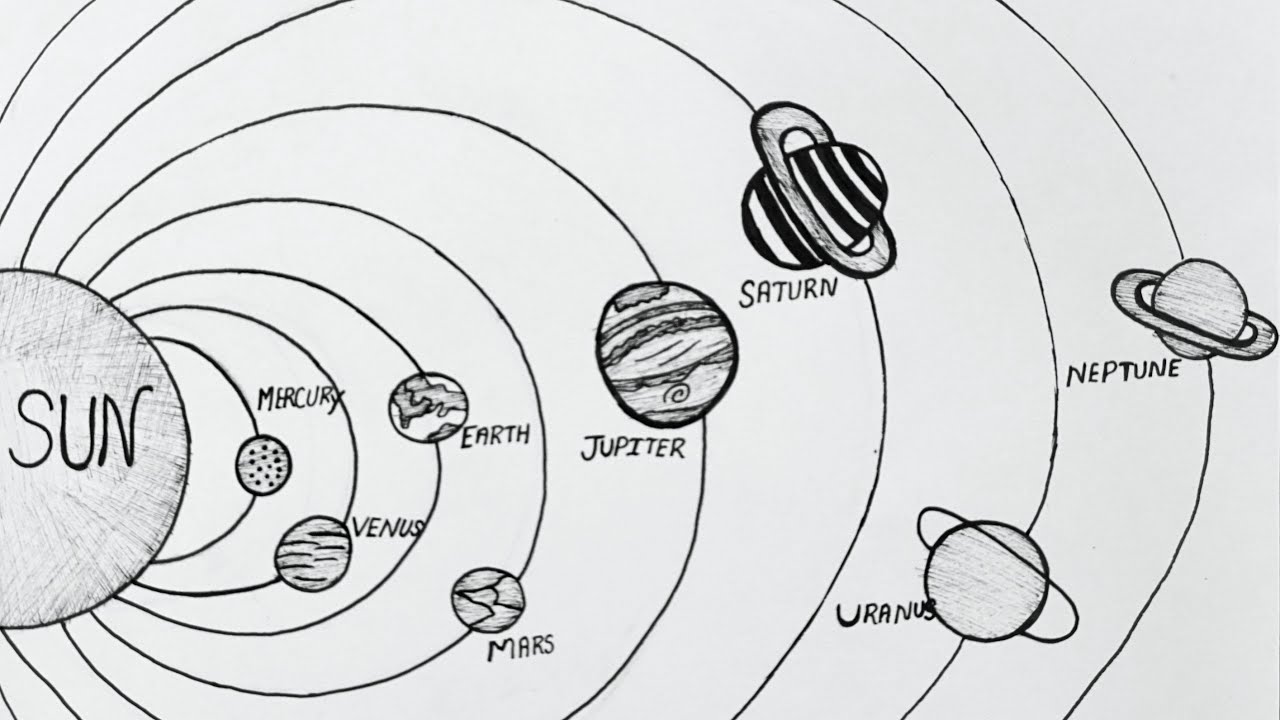 SUN
MERCURY
VENUS
EARTH
MARS
JUPITER
SATURN
URANUS
NEPTUNE